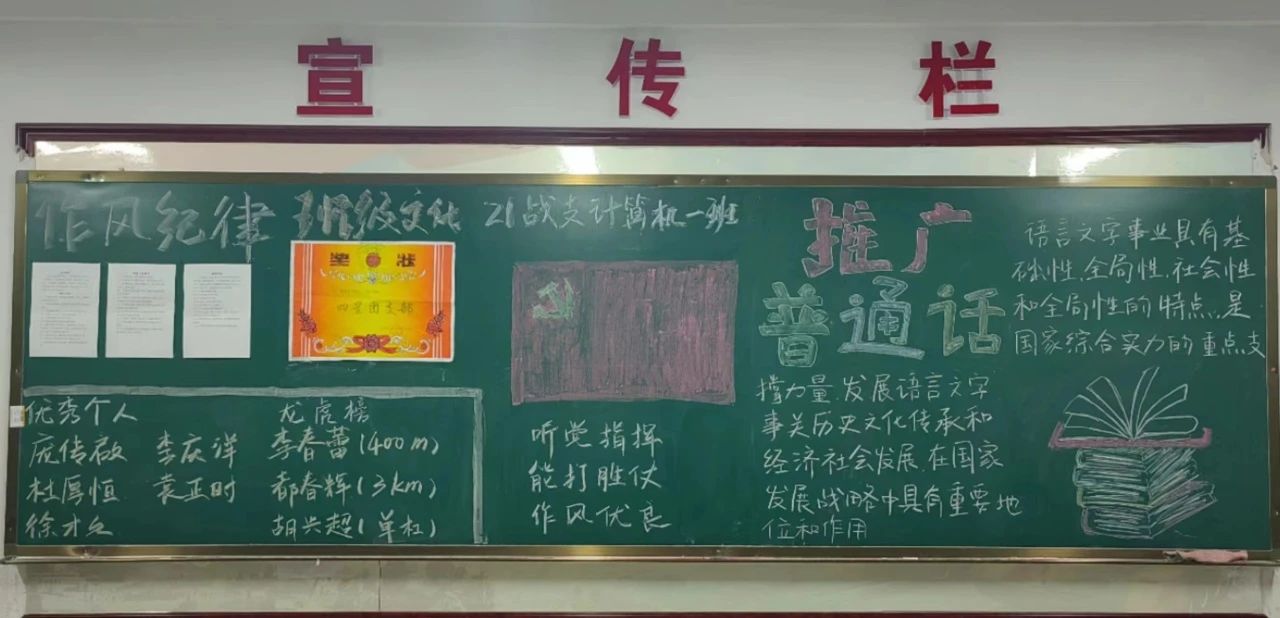 宣传栏
作风纪律
班级文化
21战支计算机一班
奖状
四星团支部
优秀个人
庞传啟 李庆洋
杜厚恒 袁正时
徐才
龙虎榜
李春蕾(400m)
郝春辉(3km)
胡兴超(单杠)
听党指挥
能打胜仗
作风优良
推广
普通话
语言文字事业具有基
础性.全局性.社会性
和全局性的特点.是
国家综合实力的重点支
撑力量.发展语言文字
事关历史文化传承和
经济社会发展.在国家
发展战略中具有重要地
位和作用